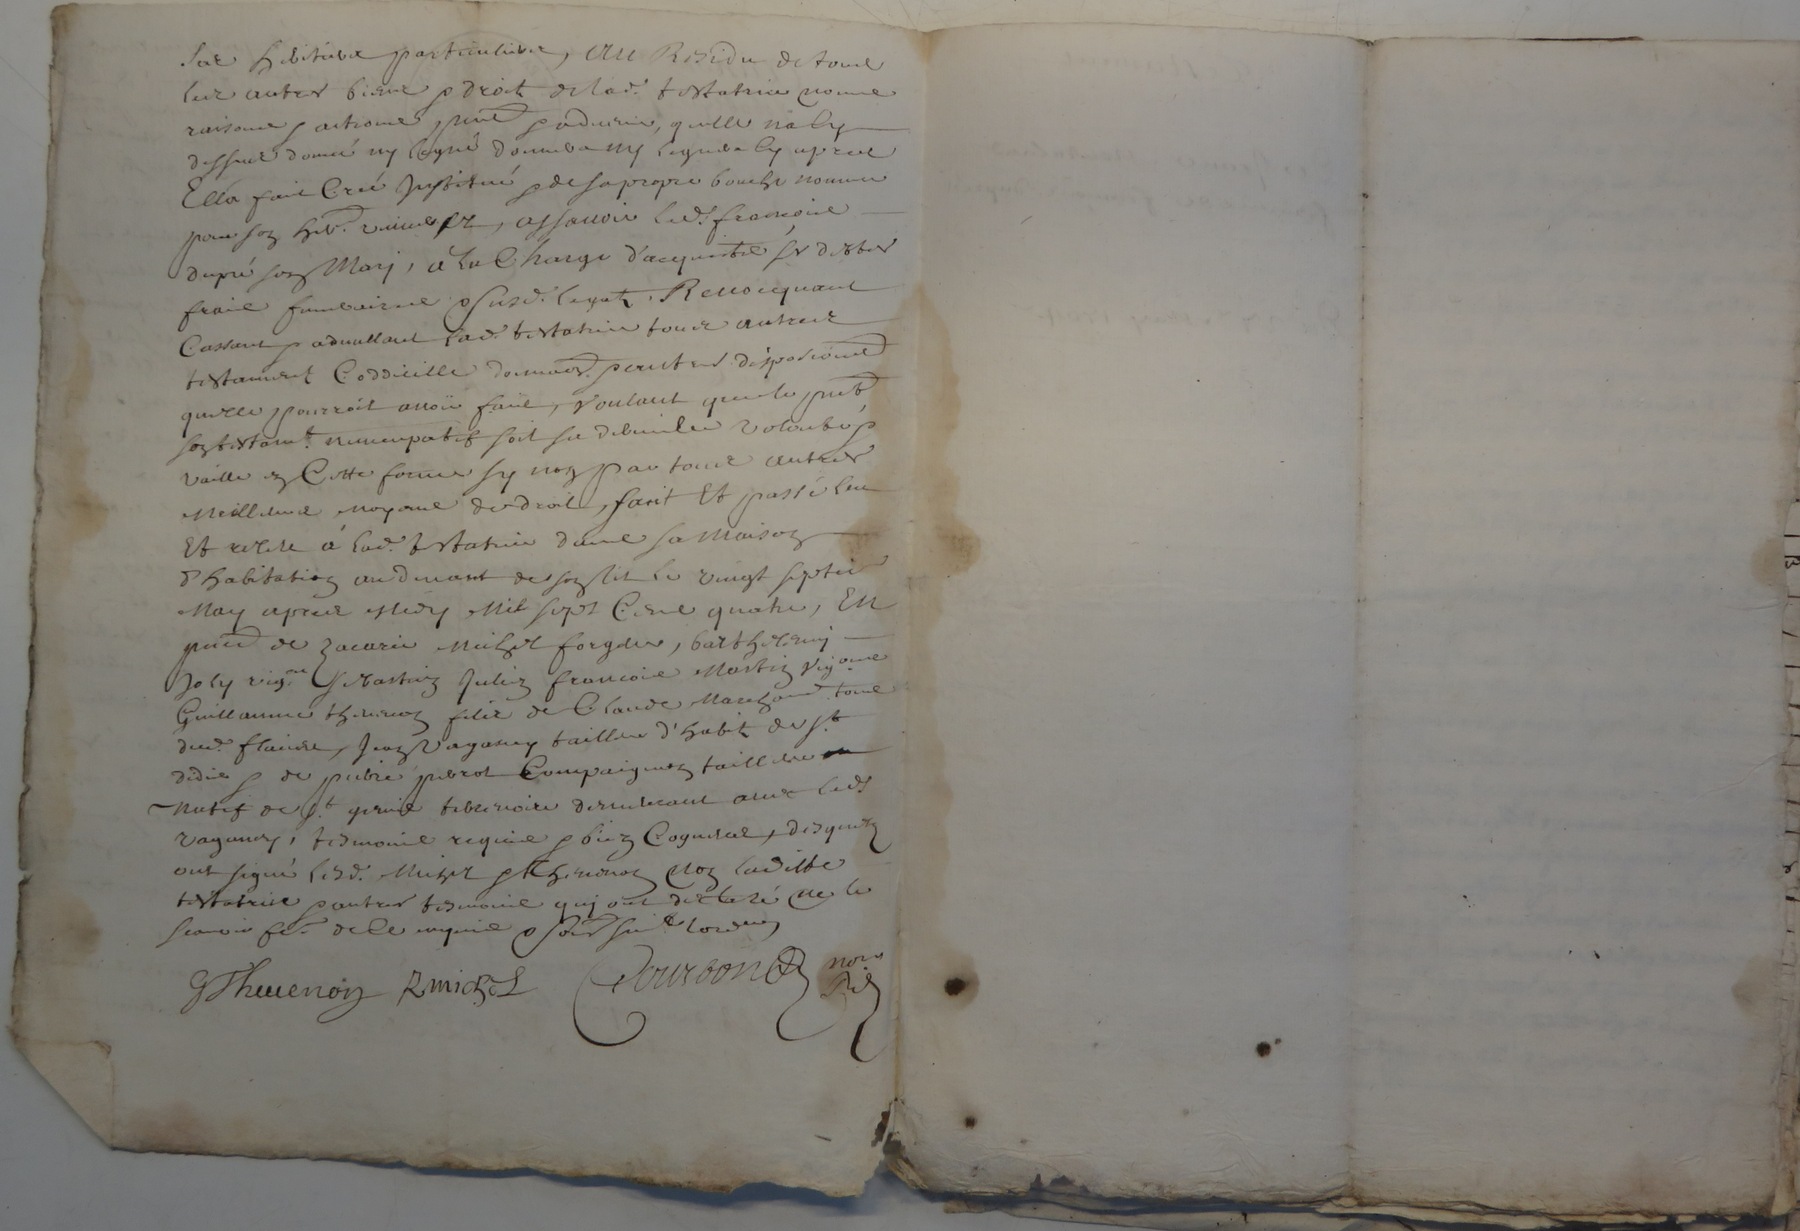 ses heritiers particuliers, Au Residu de tous
les autres biens & droits de lad. testatrice noms
raisons & actions, pnts & advenir, quelle na cy
dessus donné ny legué donnera ny leguera cy apres
Ella fait Creé Institué & de sa propre bouche nommé
pour son her. univer, assavoir led. françois
dupré son Mary, a la Charge d'acquitter ses debtes
frais funeraires & susd. legats, Revocquant
Cassant & adnullant lad. testatrice tous autres
testaments Coddicille donnaons. disposicions
quelle pourroit avoir faits, voulant que le pnt
son testamt. nuncupatif soit sa derniere volonté &
vaille en Cette forme sy non par tous autres
meilleurs moyens de droit, fait Et passé leu
Et releu á lad. testatrice dans sa Maison
d'habitation au devant de son lit le vingt sept
May apres midy Mil sept Cens quatre, En
pnce de zacarie Michel forgeur, barthelemy
Joly vign. Sebastien Julien françois Martin vignons
Guillaume thevenon fils de Claude Marchand tous
dud. , Jean vaganey tailleur d'habits de st
didier & de pierre perrot Compaignon tailleur
natif de st. genis terrenoire demeurant avec led.
vaganey, tesmoins requis & bien Cogneus, desquels
ont signé lesd. Michel & thevenon non ladite
testatrice & autres tesmoins quj ont declaré ne le
scavoir fe. de Ce enquis &
GThevenon Zmichel Courbon nore
Rl